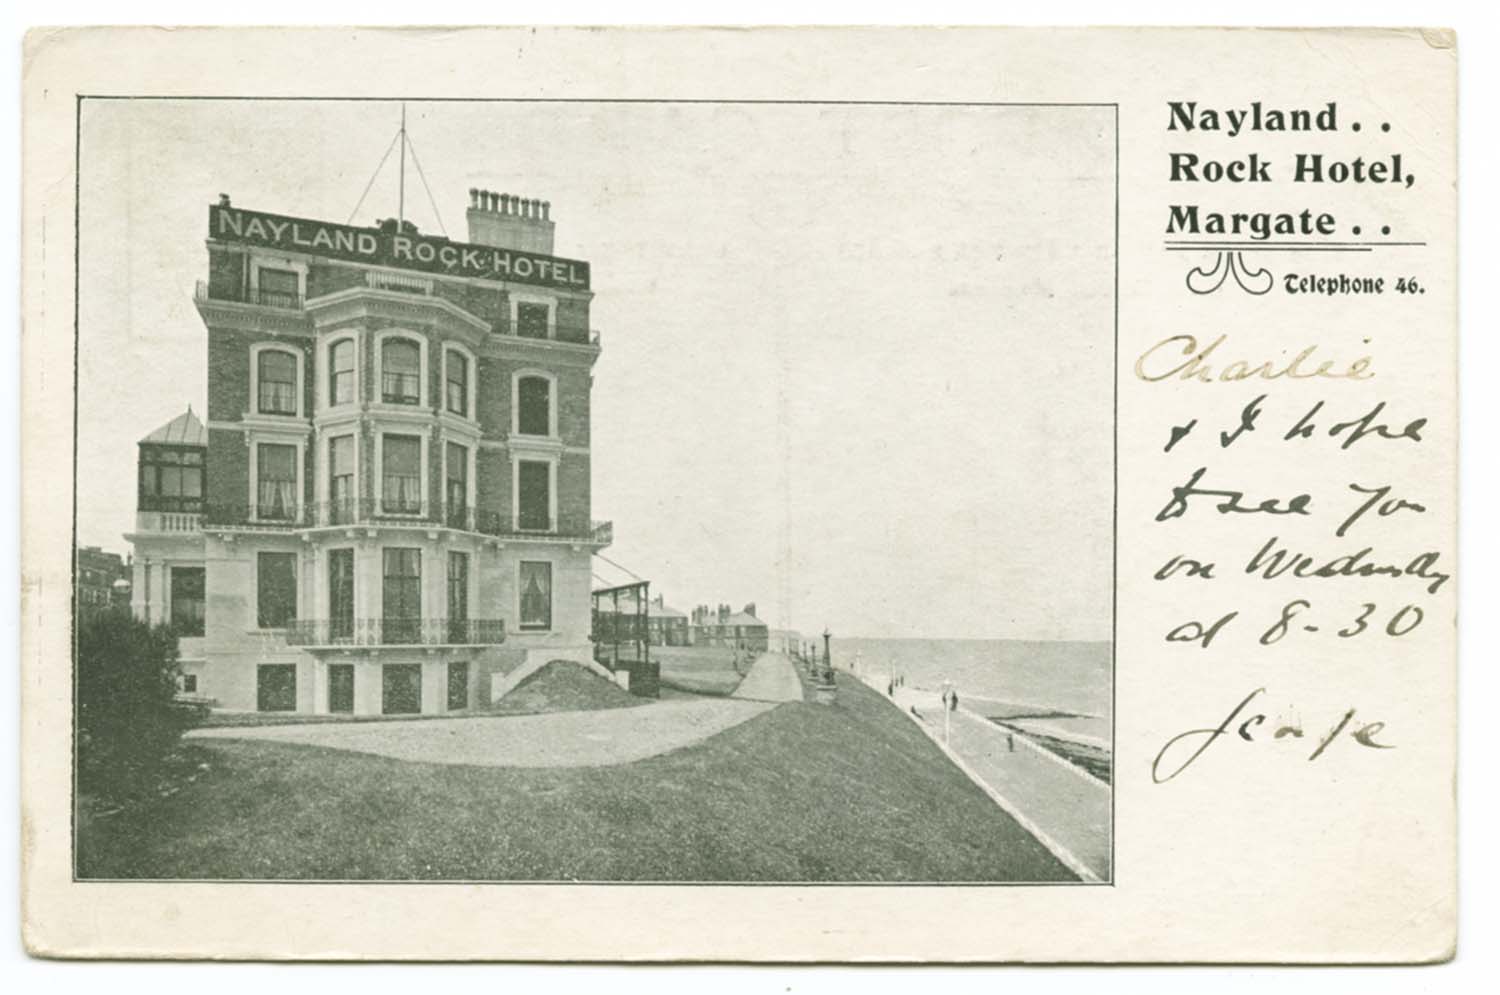 NAYLAND ROCK HOTEL
Nayland . .
Rock Hotel,
Margate . .
Telephone 46.
Charlie
& I hope
to see you
on Wednesday
at 8-30